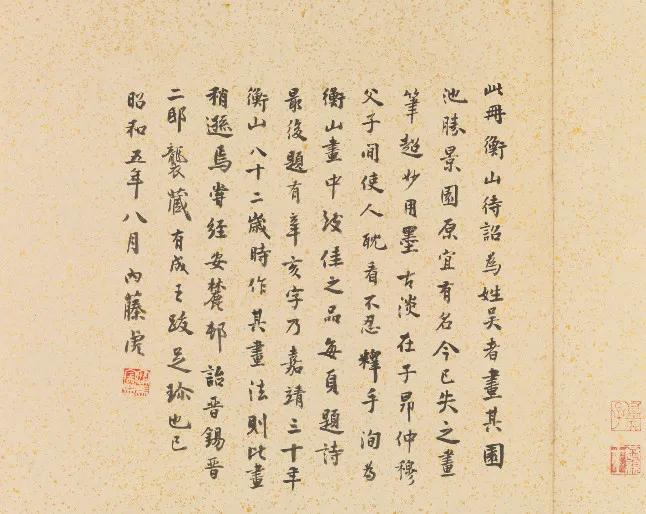 此冊衡山待詔為姓吳者畫其園
池勝景園原宜有名今已失之畫
筆超妙用墨古淡在子昂仲穆
父子間使人耽看不忍釋手洵為
衡山畫中致佳之品每頁題詩
最後題有辛亥字乃嘉靖三十年
衡山八十二歲時作其畫法則比畫
稍遜焉嘗經安麓邨詒晋錫晋
二邸襲藏有成王跋足珎也已
昭和五年八月內藤虎